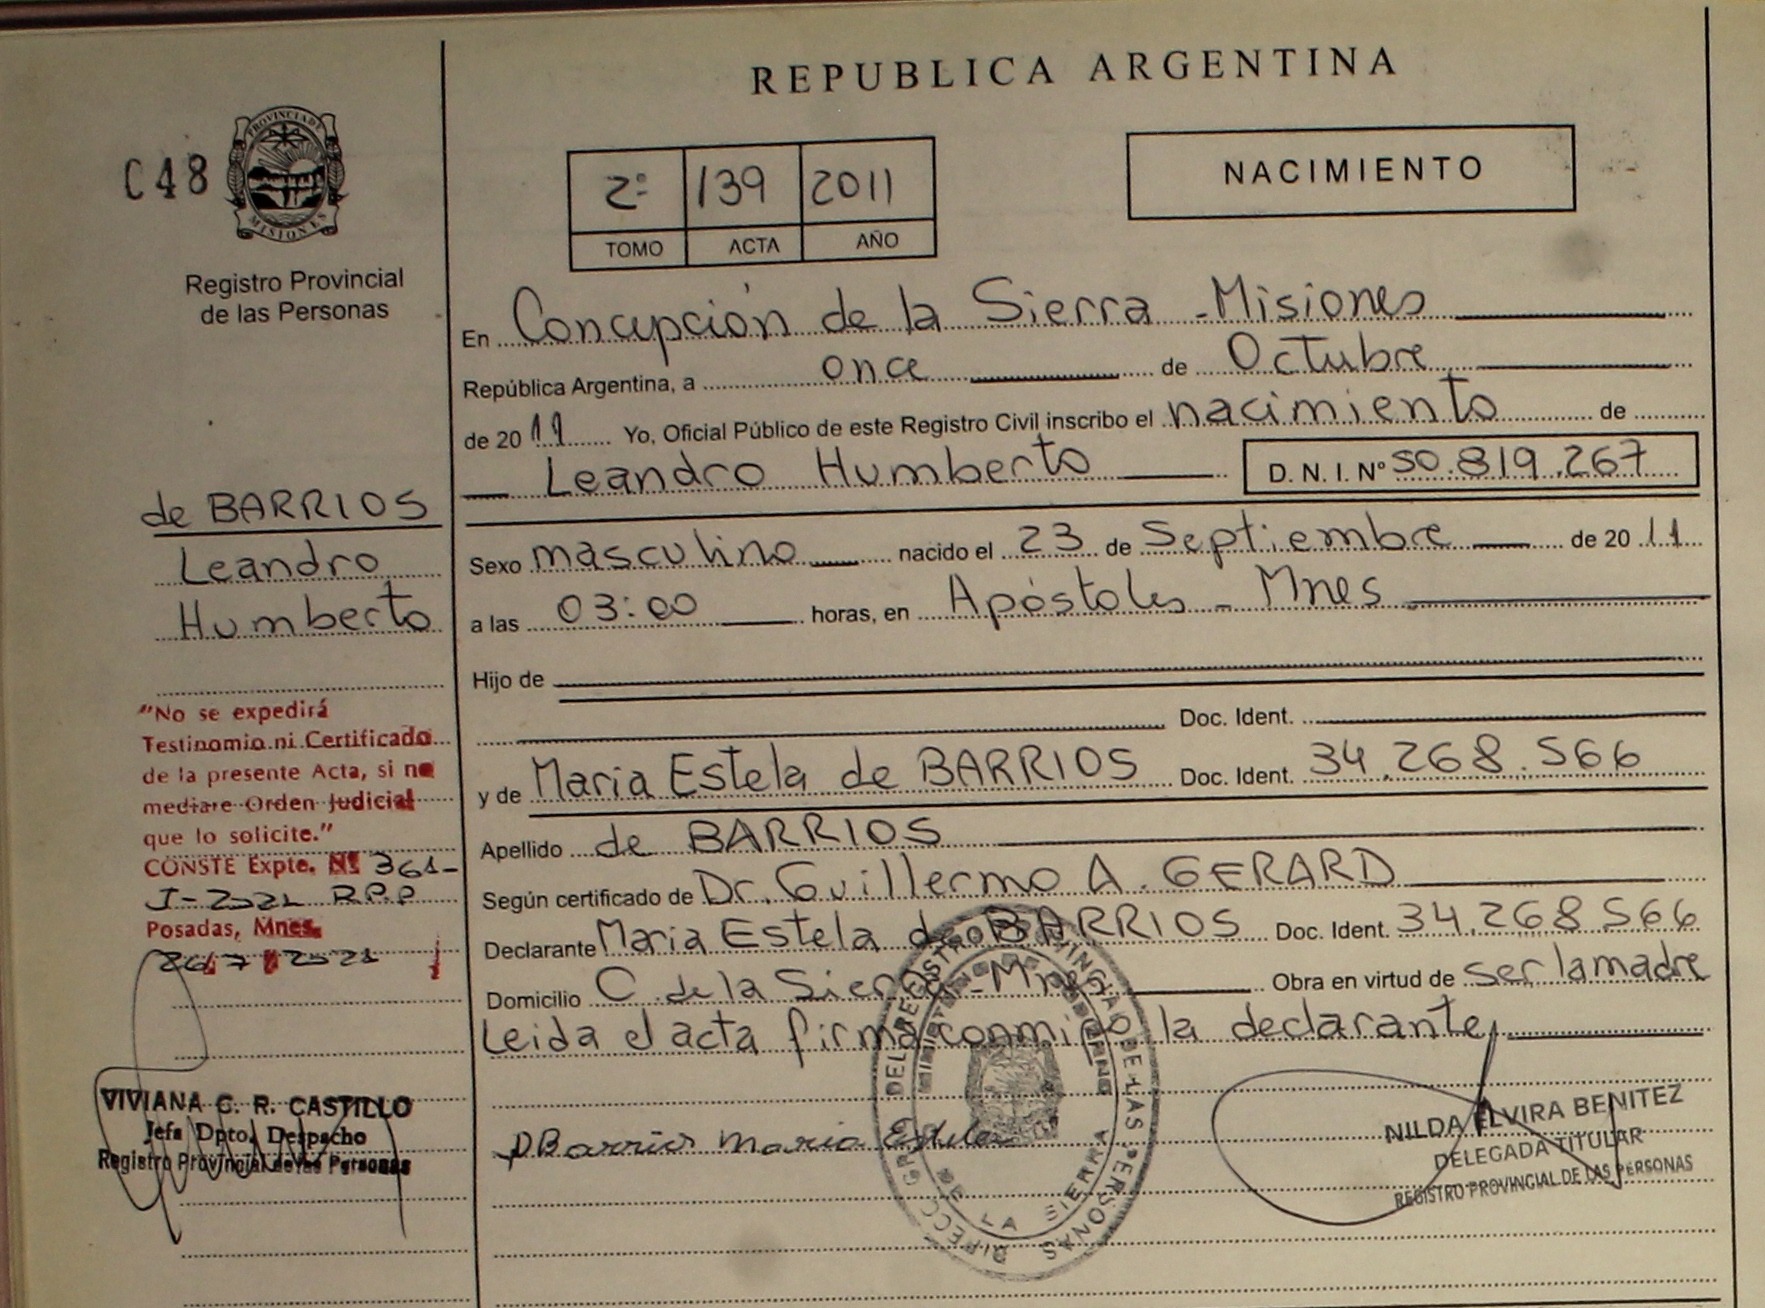 REPUBLICA ARGENTINA
C48
PROVINCIA DE
MISIONES
Registro Provincial
de las Personas
2º 139 2011
TOMO ACTA AÑO
NACIMIENTO
En Concepción de la Sierra - Misiones
República Argentina, a once de Octubre
de 2011 Yo, Oficial Público de este Registro Civil inscribo el nacimiento de
Leandro Humberto D.N.I. Nº 50.819.267
de BARRIOS
Leandro
Humberto
Sexo masculino nacido el 23 de Septiembre de 2011
a las 03:00 horas, en Apóstoles - Mnes
Hijo de
Doc. Ident.
y de Maria Estela de BARRIOS Doc. Ident. 34.268.566
Apellido de BARRIOS
Según certificado de Dr. Guillermo A. GERARD
Declarante Maria Estela de BARRIOS Doc. Ident. 34.268.566
Domicilio C. de la Sierra - Mnes Obra en virtud de ser la madre
Leida el acta firma conmigo la declarante
"No se expedirá
Testinomio ni Certificado
de la presente Acta, si no
mediare Orden Judicial
que lo solicite."
CONSTE Expte. Nº 361-
J-2021 R.P.P
Posadas, Mnes.
VIVIANA C. R. CASTILLO
Jefa Dpto. Despacho
Registro Provincial de las Personas
Barrios Maria Estela
DE LAS PERSONAS
DE LA SIERRA
NILDA ELVIRA BENITEZ
DELEGADA TITULAR
REGISTRO PROVINCIAL DE LAS PERSONAS